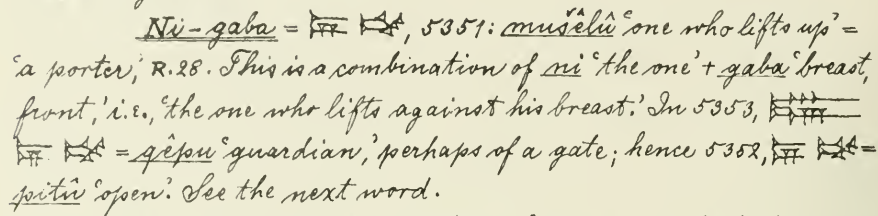 Ni-gaba = 𒉌 𒃮, 5351: mušêlû 'one who lifts up' =
'a porter,' R.28. This is a combination of ni 'the one' + gaba 'breast,
front,' i.e., 'the one who lifts against his breast.' In 5353,
𒉌 𒃮 = qêpu 'guardian,' perhaps of a gate; hence 5352, 𒉌 𒃮 =
pitû 'open'. See the next word.